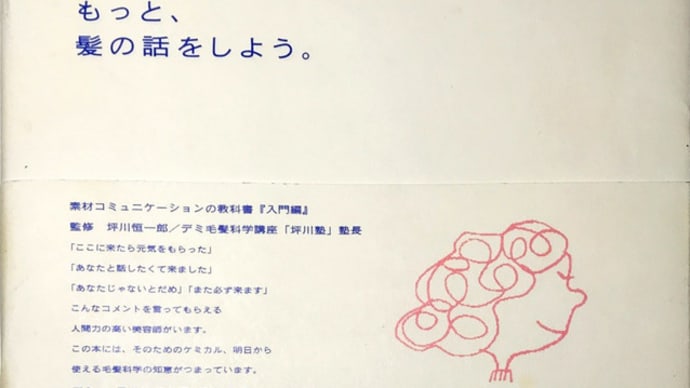 もっと、
髪の話をしよう。
素材コミュニケーションの教科書『入門編』
監修　坪川恒一郎／デミ毛髪科学講座「坪川塾」塾長
「ここに来たら元気をもらった」
「あなたと話したくて来ました」
「あなたじゃないとだめ」「また必ず来ます」
こんなコメントを言ってもらえる
人間力の高い美容師がいます。
この本には、そのためのケミカル、明日から
使える毛髪科学の知恵がつまっています。